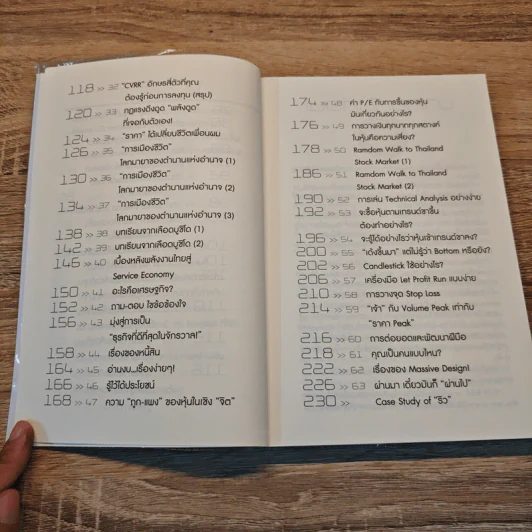 118 >> 32 "CVRR" อักษรสี่ตัวที่คุณ
ต้องรู้ก่อนการลงทุน (สรุป)
120 >> 33 กฎแรงดึงดูด "พลังดูด"
ที่เจอกับตัวเอง!
124 >> 34 "ราคา" ได้เปลี่ยนชีวิตเพื่อนผม
126 >> 35 "การเมืองชีวิต"
โลกมายาของตำนานแห่งอำนาจ (1)
130 >> 36 "การเมืองชีวิต"
โลกมายาของตำนานแห่งอำนาจ (2)
134 >> 37 "การเมืองชีวิต"
โลกมายาของตำนานแห่งอำนาจ (3)
138 >> 38 บทเรียนจากเลือดบูชิโด (1)
142 >> 39 บทเรียนจากเลือดบูชิโด (2)
146 >> 40 เบื้องหลังพลังงานไทยสู่
Service Economy
150 >> 41 อะไรคือเศรษฐกิจ?
152 >> 42 ถาม-ตอบ ไขข้อข้องใจ
156 >> 43 มุ่งสู่การเป็น
"ธุรกิจที่ดีที่สุดในจักรวาล!"
158 >> 44 เรื่องของหนี้สิน
164 >> 45 อ่านงบ...เรื่องง่ายๆ!
166 >> 46 รู้ไว้ได้ประโยชน์
168 >> 47 ความ "ถูก-แพง" ของหุ้นในเชิง "จิต"
174 >> 48 ค่า P/E กับการขึ้นของหุ้น
มันเกี่ยวกันอย่างไร?
176 >> 49 การวางเงินทุกบาททุกสตางค์
ในหุ้นคือความเสี่ยง?
178 >> 50 Ramdom Walk to Thailand
Stock Market (1)
186 >> 51 Ramdom Walk to Thailand
Stock Market (2)
190 >> 52 การเล่น Technical Analysis อย่างง่าย
192 >> 53 จะซื้อหุ้นตามเทรนด์ขาขึ้น
ต้องทำอย่างไร?
196 >> 54 จะรู้ได้อย่างไรว่าหุ้นเข้าเทรนด์ขาลง?
200 >> 55 "เด้งขึ้นมา" แต่ไม่รู้ว่า Bottom หรือยัง?
202 >> 56 Candlestick ใช้อย่างไร?
206 >> 57 เครื่องมือ Let Profit Run แบบง่าย
210 >> 58 การวางจุด Stop Loss
214 >> 59 "เจ้า" กับ Volume Peak เท่ากับ
"ราคา Peak"
216 >> 60 การต่อยอดและพัฒนาฝีมือ
218 >> 61 คุณเป็นคนแบบไหน?
222 >> 62 เรื่องของ Massive Design!
226 >> 63 ผ่านมา เดี๋ยวมันก็ "ผ่านไป"
230 >> Case Study of "ริว"